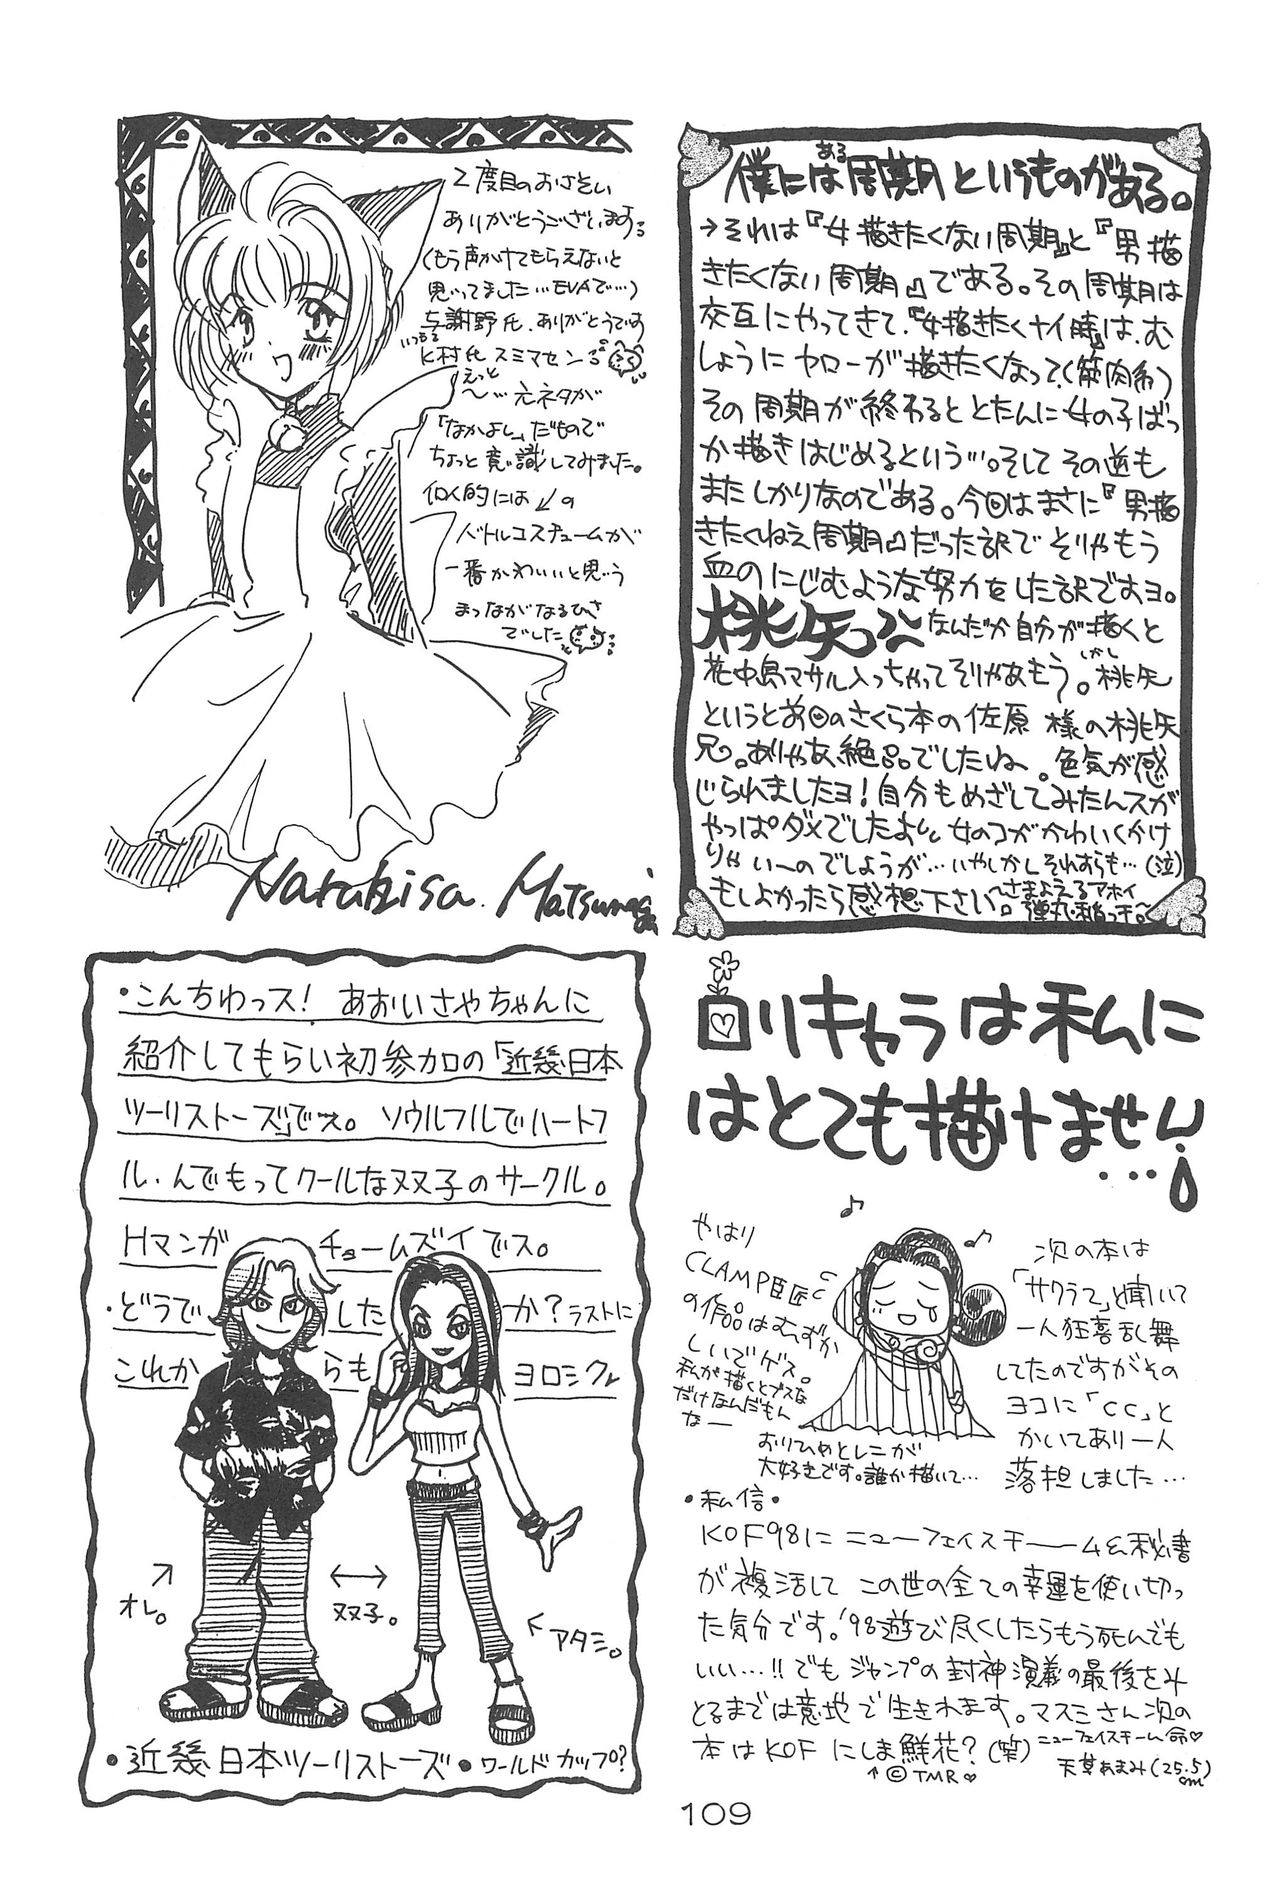 2度目のおさそい
ありがとうございます
(もう声かけてもらえないと
思ってました…EVAで…)
与謝野氏、ありがとうです
いつも
ヒ村氏 スミマセン
えっと
〜…元ネタが
「なかよし」だもので
ちょっと意識してみました。
個人的には↙の
バトルコスチュームが
一番かわいいと思う
まつながなるひさ
でした
Naruhisa. Matsunaga
僕には周期というものがある。
ある
→それは『女描きたくない周期』と『男描
きたくない周期』である。その周期は
交互にやってきて、『女描きたくナイ時』は、む
しょうにヤローが描きたくなって(筋肉系)
その周期が終わるととたんに女の子ばっ
か描きはじめるという…。そしてその逆も
またしかりなのである。今回はまさに『男描
きたくねえ周期』だった訳でそりゃもう
血のにじむような努力をした訳ですヨ。
桃矢っ なんだか自分が描くと
花中島マサル入っちゃってそりゃあもう。しかし桃矢
というと前回のさくら本の佐原様の桃矢
兄。ありゃあ絶品でしたね。色気が感
じられましたヨ!自分もめざしてみたんスが
やっぱダメでしたよ。女のコがかわいくかけ
りゃい〜のでしょうが…いやしかしそれすらも…(泣)
もしよかったら感想下さい。さまよえるアホイ〜
弾丸稲っチ。
・こんちわっス! あおいさやちゃんに
紹介してもらい初参加の「近畿日本
ツーリストーズ」でス。ソウルフルでハートフ
ル・んでもってクールな双子のサークル。
Hマンガ チョームズイでス。
・どうでしたか?ラストに
これからもヨロシクル
オレ。
双子。
アタシ。
・近畿日本ツーリストーズ・ワールドカップ?
ロリキャラは私に
はとても描けません…
やはり
CLAMP巨匠
の作品はむずか
しいでゲス。
私が描くとブスな
だけなんだもん
なー
おりひめとレニが
大好きです。誰か描いて…
次の本は
「サクラ」と聞いて
一人狂喜乱舞
してたのですがその
ヨコに「CC」と
かいてあり一人
落担しました…
・私信・
KOF98にニューフェイスチーム&秘書
が復活してこの世の全ての幸運を使い切っ
た気分です。'98遊び尽くしたらもう死んでも
いい…!!でもジャンプの封神演義の最後をみ
とるまでは意地で生きれます。マスミさん次の
本はKOFにしま鮮花?(笑)ニューフェイスチーム命♡
↑©TMR♡
天草あまみ(25.5)cm
109